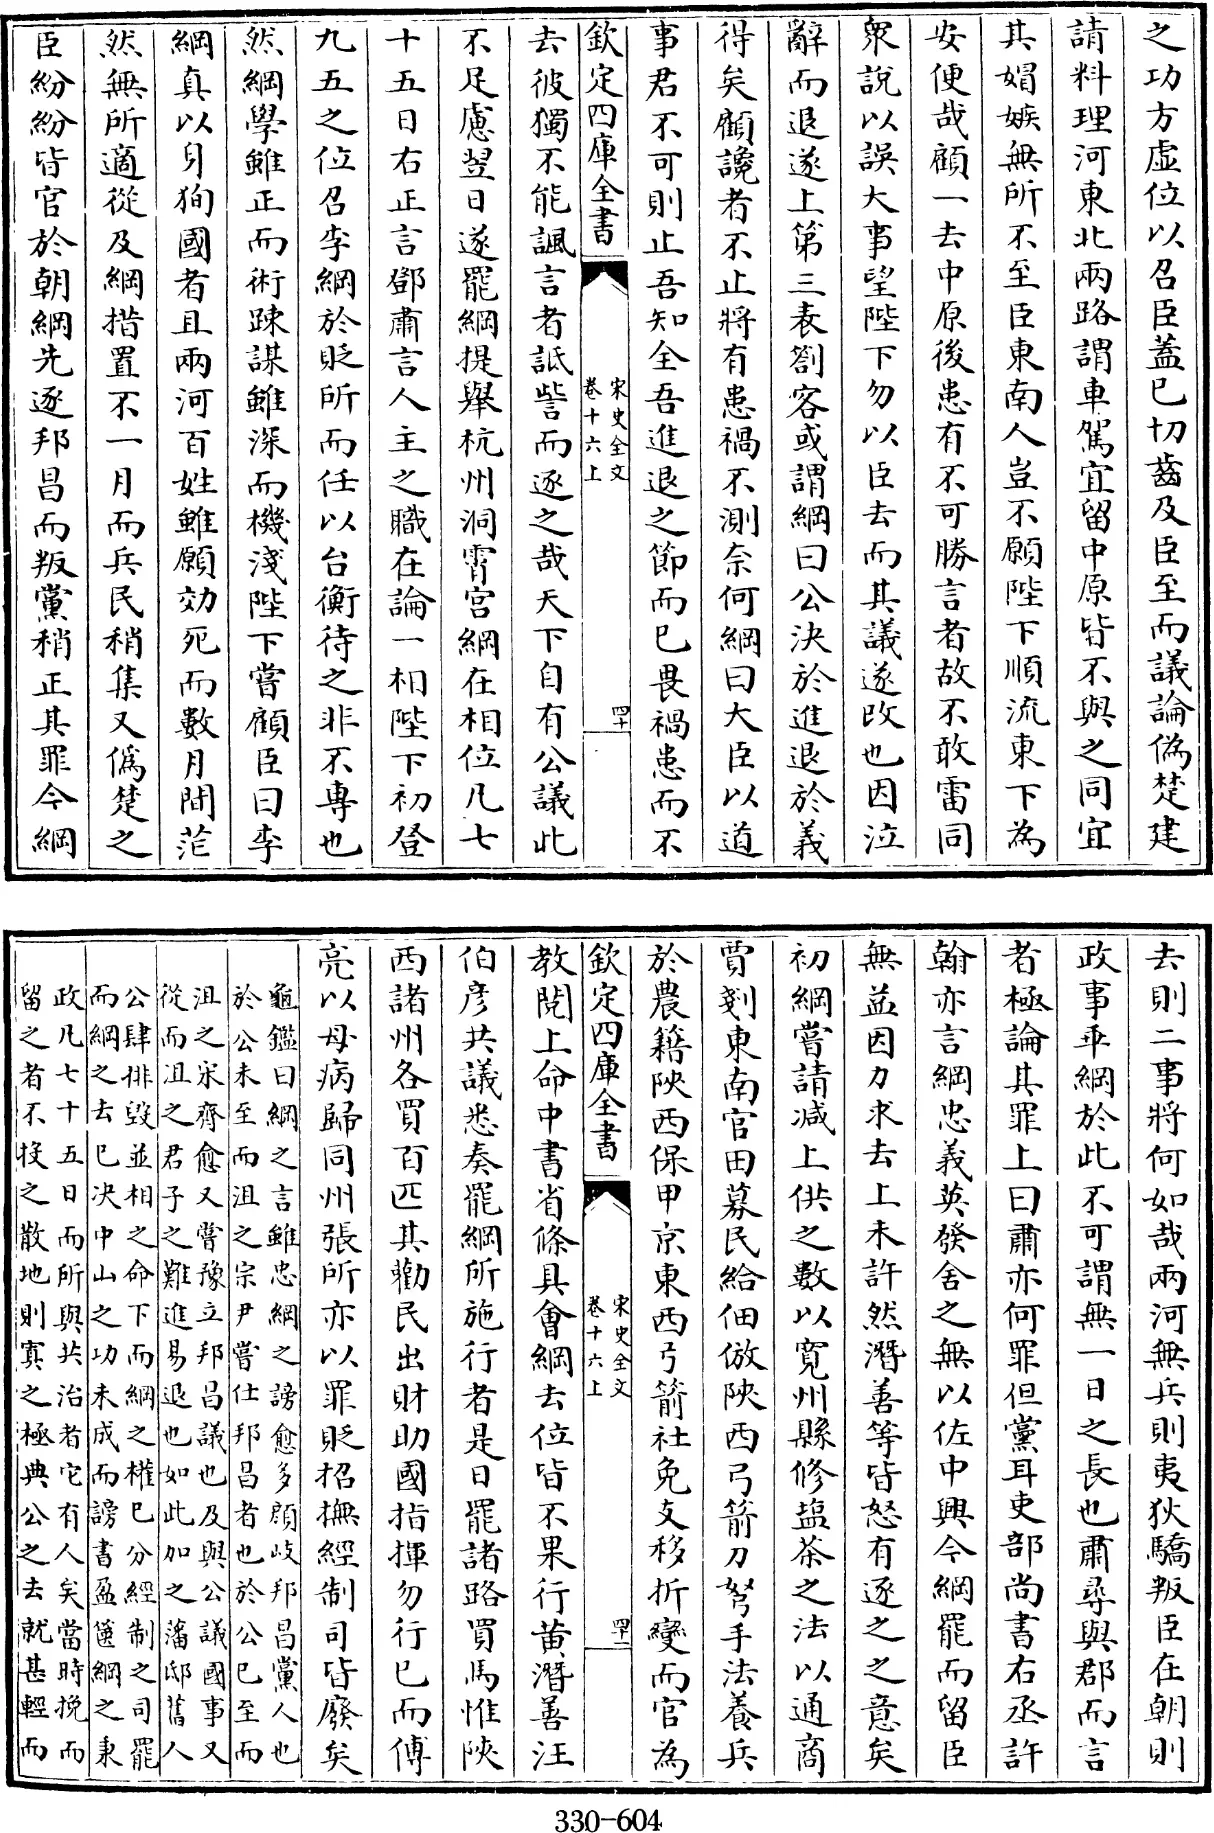 之功方虛位以召臣蓋已切齒及臣至而議論偽楚建
請料理河東北兩路謂車駕宜留中原皆不與之同宜
其媢嫉無所不至臣東南人豈不願陛下順流東下為
安便哉顧一去中原後患有不可勝言者故不敢雷同
衆說以誤大事望陛下勿以臣去而其議遂改也因泣
辭而退遂上第三表劄客或謂綱曰公決於進退於義
得矣顧讒者不止將有患禍不測奈何綱曰大臣以道
事君不可則止吾知全吾進退之節而已畏禍患而不
欽定四庫全書
宋史全文
卷十六上
四十
去彼獨不能諷言者詆訾而逐之哉天下自有公議此
不足慮翌日遂罷綱提舉杭州洞霄宫綱在相位凡七
十五日右正言鄧肅言人主之職在論一相陛下初登
九五之位召李綱於貶所而任以台衡待之非不專也
然綱學雖正而術踈謀雖深而機淺陛下嘗顧臣曰李
綱真以身狥國者且兩河百姓雖願効死而數月間茫
然無所適從及綱措置不一月而兵民稍集又偽楚之
臣紛紛皆官於朝綱先逐邦昌而叛黨稍正其罪今綱
去則二事將何如哉兩河無兵則夷狄驕叛臣在朝則
政事乖綱於此不可謂無一日之長也肅尋與郡而言
者極論其罪上曰肅亦何罪但黨耳吏部尚書右丞許
翰亦言綱忠義英發舍之無以佐中興今綱罷而留臣
無益因力求去上未許然潛善等皆怒有逐之之意矣
初綱嘗請减上供之數以寛州縣修鹽茶之法以通商
賈剗東南官田募民給佃倣陜西弓箭刀弩手法養兵
於農籍陜西保甲京東西弓箭社免支移折變而官為
欽定四庫全書
宋史全文
卷十六上
四十一
教閱上命中書省條具會綱去位皆不果行黄潛善汪
伯彦共議悉奏罷綱所施行者是日罷諸路買馬惟陜
西諸州各買百匹其勸民出財助國指揮勿行已而傅
亮以母病歸同州張所亦以罪貶招撫經制司皆廢矣
龜鑑曰綱之言雖忠綱之謗愈多顔岐邦昌黨人也
於公未至而沮之宗尹嘗仕邦昌者也於公已至而
沮之宋齊愈又嘗豫立邦昌議也及與公議國事又
從而沮之君子之難進易退也如此加之藩邸舊人
公肆排毀並相之命下而綱之權已分經制之司罷
而綱之去已決中山之功未成而謗書盈篋綱之東
政凡七十五日而所與共治者它有人矣當時挽而
留之者不投之散地則寘之極典公之去就甚輕而
330-604